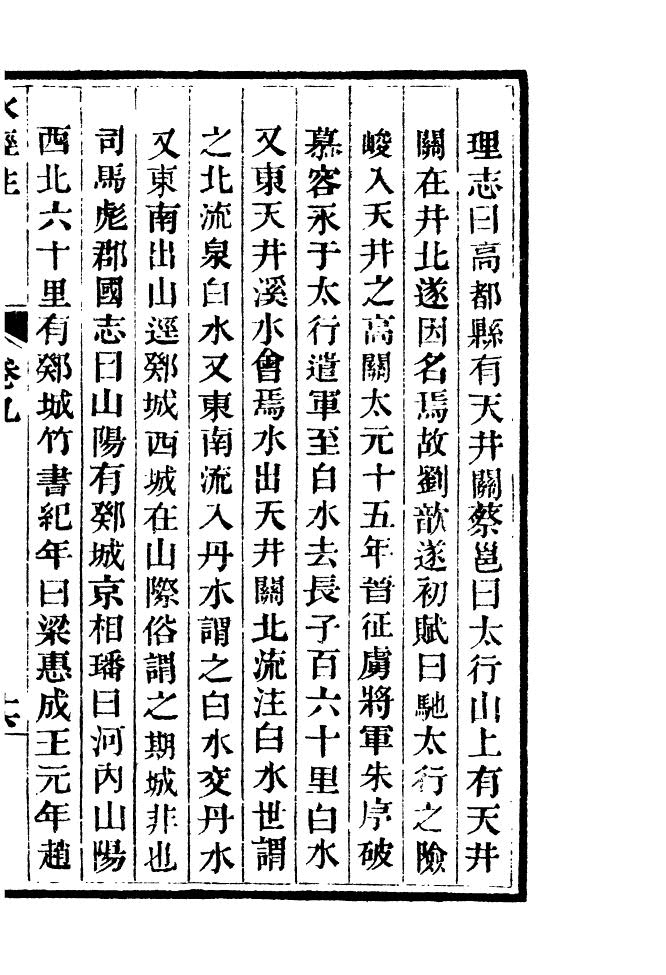 理志曰高都縣有天井關蔡邕曰太行山上有天井
關在井北遂因名焉故劉歆遂初賦曰馳太行之險
峻入天井之高關太元十五年晉征虜將軍朱序破
慕容永于太行遣軍至白水去長子百六十里白水
又東天井溪水會焉水出天井關北流注白水世謂
之北流泉白水又東南流入丹水謂之白水交丹水
又東南出山逕鄈城西城在山際俗謂之期城非也
司馬彪郡國志曰山陽有鄈城京相璠曰河內山陽
西北六十里有鄈城竹書紀年曰梁惠成王元年趙
水經注 卷九 六